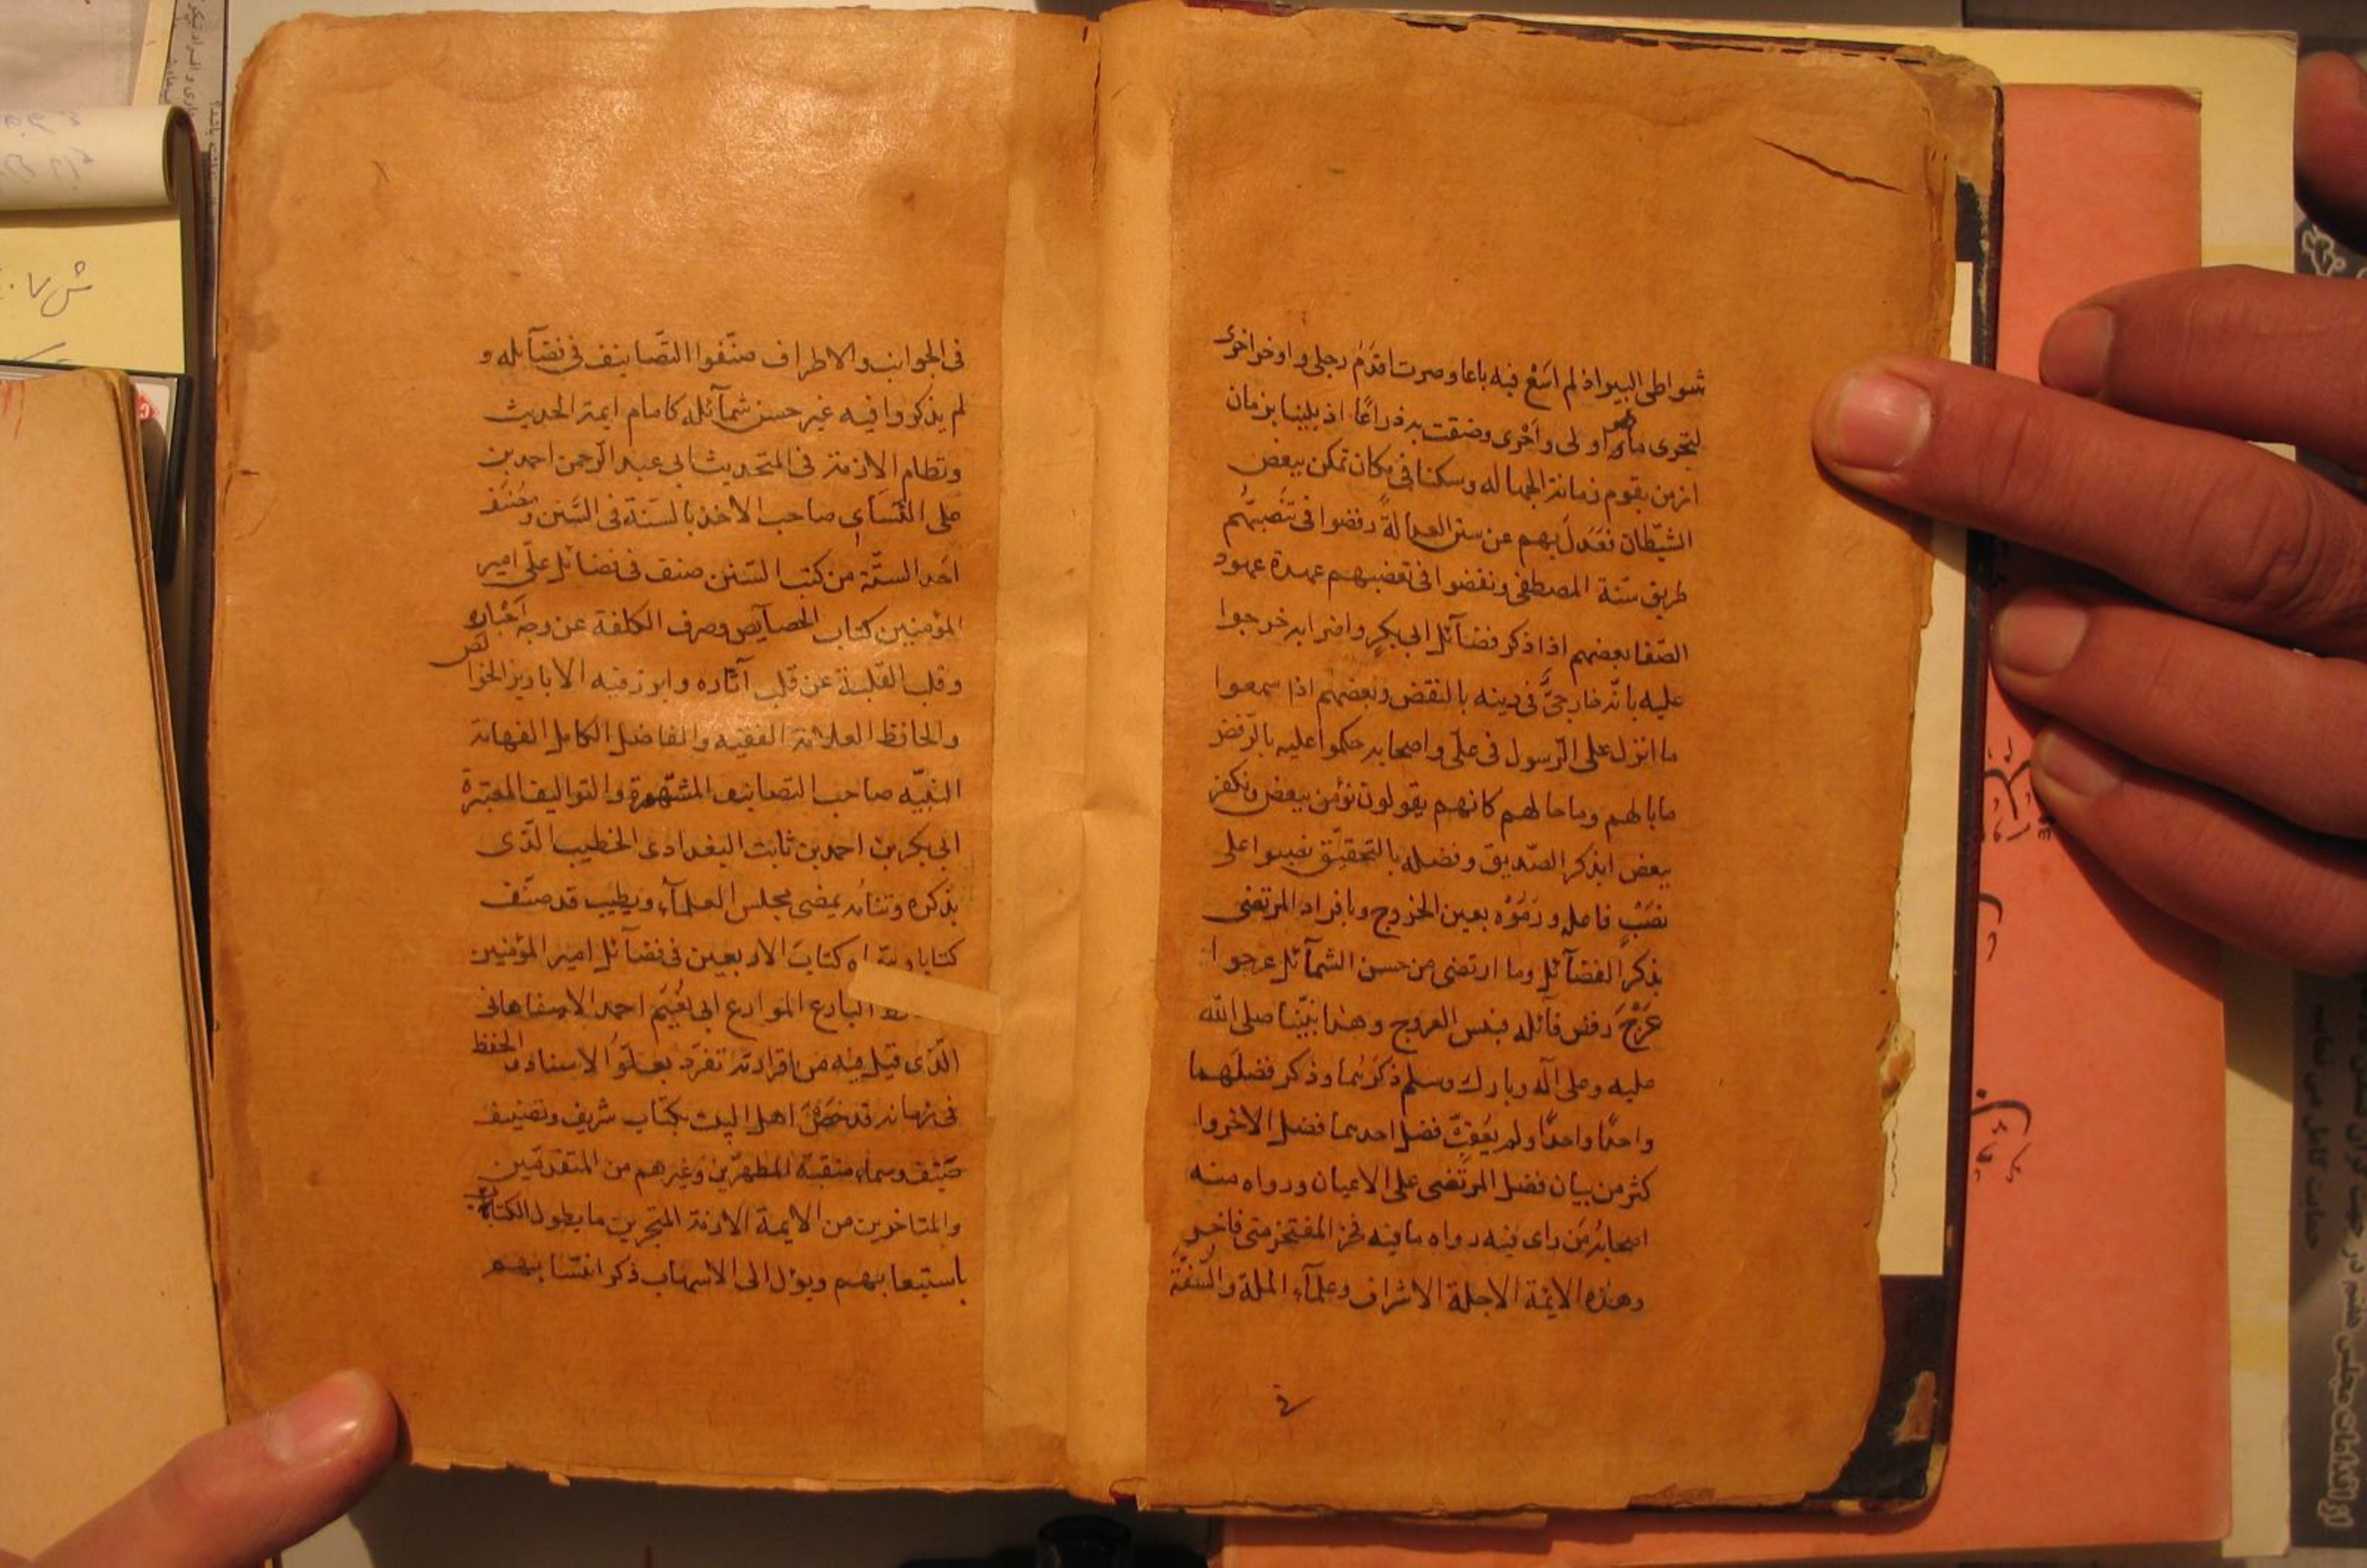 شواطی البیر اذ لم اسَعْ فیه باعا وصرت اقدَم رجلی و اوخر اخری
لتحری ما هو اولی و اَحْری وضقت به ذراعًا اذ بلینا بزمان
ازمن بقوم زمانة الجهاله وسكنا فی مكان تمكن ببعض
الشیطان فعَدَلَ بهم عن سنن العدالة رفضوا فی تنصبهم
طریق سنّة المصطفی ونقضوا فی تعصبهم عهدة عهود
الصّفا بعضهم اذا ذكر فضآئل ابی بكرٍ واضرابه خرجوا
علیه بانّه خارجیٌّ فی دینه بالنقض وبعضهم اذا سمعوا
ما انزل علی الرّسول فی علّی واصحابه حكموا علیه بالرّفض
ما بالهم وما حالهم كانهم یقولون نؤمن ببعض ونكفر
ببعض ابذكر الصّدیق وفضله بالتحقیق نصبوا علی
نصَبٍ فاعله ورَمَوْه بعین الخروج وبافراد المرتضی
بذكر الفضآئل وما ارتضی من حسن الشمآئل عرجوا
عَرْجَ رفض قآئله فبئس العروج وهذا نبیّنا صلی الله
علیه وعلی آله وبارك وسلم ذكرَهُما وذكر فضلَهما
واحدًا واحدًا ولم یُفوِّت فضل احدهما فضل الاخر وا
كثر من بیان فضل المرتضی علی الاعیان ورواه منه
اصحابُه مَن رای فیه رواه ما فیه فخر المفتخر متی فاخر
وهذه الایمّة الاجلة الاشراف وعلمآء الملة والسُّنّة
فی
فی الجوانب والاطراف صنّفوا التّصانیف فی فضآئله و
لم یذكروا فیه غیر حسن شمآئله كامام ایمة الحدیث
ونظام الازمة فی التحدیث ابی عبد الرّحمن احمد بن
علی النّسَای صاحب الاخذ بالسّنة فی السّنن ومُصَنّف
احَد السّتّة من كتب السّنن صنف فی فضائل علّی امیر
المؤمنین كتاب الخصآیص وصرف الكلفة عن وجه اَخْباره
وقلب القلبة عن قلب آثاره وابرز فیه الابریز الخالص
والحافظ العلامة الفقیه والفاضل الكامل الفهامة
النبیّه صاحب التصانیف المشتهرة والتوالیف المعتبرة
ابی بكر بن احمد بن ثابت البغدادی الخطیب الّذی
بذكره وثنائه یمضی مجلس العلمآء ویطیب قد صنّف
كتابا وسمّاه كتابَ الاربعین فی فضآئل امیر المؤمنین
البارع الموارع ابی نُعَیَم احمد الاصفاهانی
الّذی قیل فیه من اقرانه تفرّد بعلوّ الاسناد والحفظ
فی زمانه قد خصَّ اهل البیت بكتاب شریف وتصنیف
صَیّنف وسماه منقبة المطهّرین وغیرهم من المتقدمّین
والمتاخرین من الایمة الازمة المتبحرین ما یطول الكتاب
باستیعابهم ویؤل الی الاسهاب ذكر انتسابهم